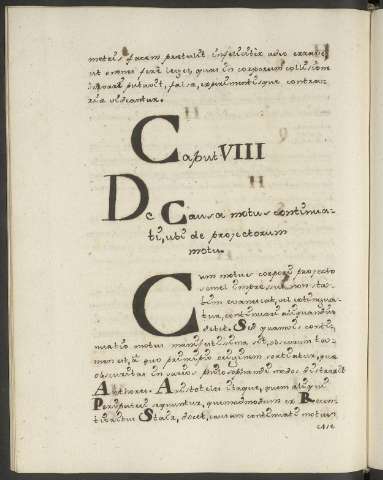 metris facem prætulit infeliciter adeo erravit
ut omnes ferè leges, quas in corporum collisione
servari putavit, falsæ, experimentisque contra-
riæ videantur.
Caput VIII
De Causa motus continua-
ti, ubi de projectorum
motu.
Cum motus corpori projecto
semel impressus non sta-
tim evanescat, sed continua-
tur, continuari aliquandiu
debet. Sed quamvis conti-
nuatio motus manifestissima sit, obscurum ta-
men est, à quo principio originem sortiatur, quæ
obscuritas in varios philosophandi modos distraxit
Authores. Aristoteles itaque, quem aliqui
Peripatetici sequuntur, quemadmodum ex Recen-
tioribus Stair, docet, causam continuati motus
esse